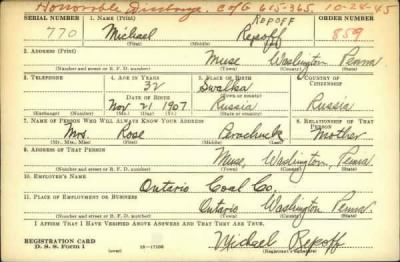 Honorable Discharge. C of G 615-365. 10-28-45
REPOFF
SERIAL NUMBER 1. NAME (Print) ORDER NUMBER
770 Michael Repoff 859
(First) (Middle) (Last)
2. ADDRESS (Print)
Muse Washington Penna
(Number and street or R. F. D. number) (Town) (County) (State)
3. TELEPHONE 4. AGE IN YEARS 5. PLACE OF BIRTH 6. COUNTRY OF CITIZENSHIP
32 Svalka
DATE OF BIRTH (Town or county)
Nov 21 1907 Russia Russia
(Mo.) (Day) (Yr.) (State or country)
7. NAME OF PERSON WHO WILL ALWAYS KNOW YOUR ADDRESS 8. RELATIONSHIP OF THAT PERSON
Mrs. Rose Parachuck Mother
(Mr., Mrs., Miss) (First) (Middle) (Last)
9. ADDRESS OF THAT PERSON
Muse, Washington, Penna.
(Number and street or R. F. D. number) (Town) (County) (State)
10. EMPLOYER'S NAME
Ontario Coal Co.
11. PLACE OF EMPLOYMENT OR BUSINESS
Ontario Washington Penna.
(Number and street or R. F. D. number) (Town) (County) (State)
I AFFIRM THAT I HAVE VERIFIED ABOVE ANSWERS AND THAT THEY ARE TRUE.
REGISTRATION CARD
D. S. S. Form 1 (over) Michael Repoff
(Registrant's signature)